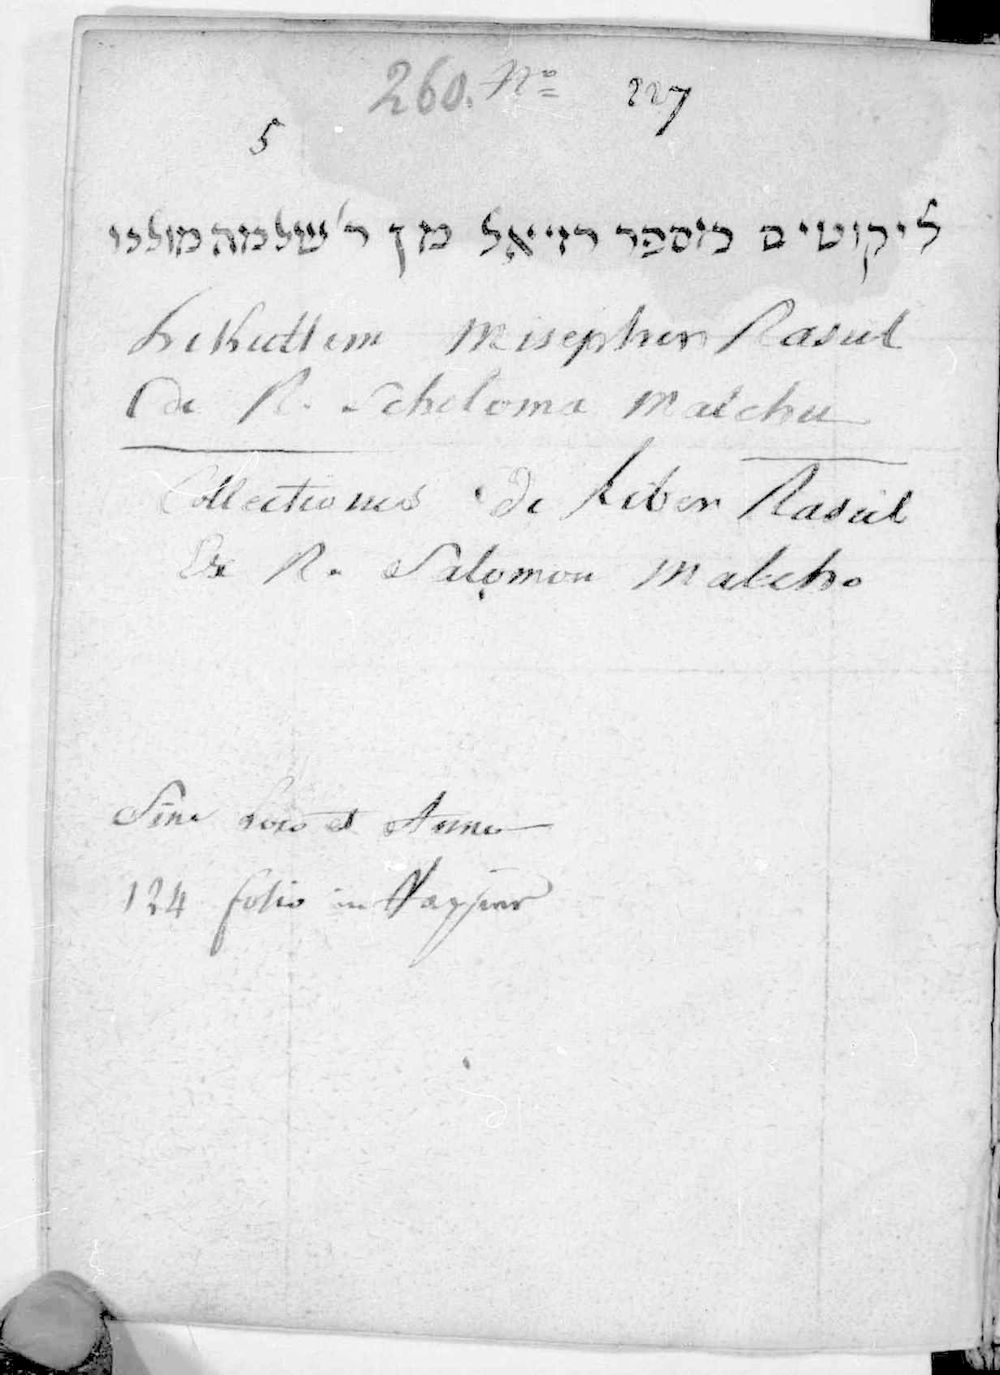 260. No 227
5
ליקוטים מספר רזיאל מן ר' שלמה מולכו
Likuttim Misepher Rasiel
de R. Scheloma Malchu
Collectiones de Liber Rasiel
Ex R. Salomon Malcho
Sine Loco et Anno
124 folio in